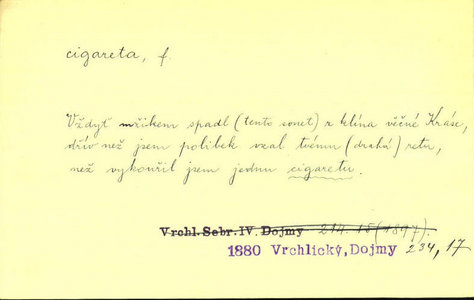 cigareta, f.
Vždyť mžikem spadl (tento sonet) z klína věčné Kráse,
dřív než jsem polibek vzal tvému (drahá) retu,
než vykouřil jsem jednu cigaretu.
Vrchl. Sebr. IV. Dojmy 214. 15 (1897).
1880 Vrchlický, Dojmy 234, 17